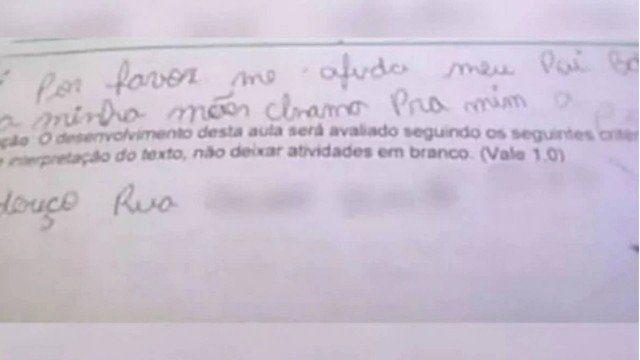 Por favor me ajuda meu Pai Ba
a minha mãe chamo Pra mim a
ção O desenvolvimento desta aula será avaliado seguindo os seguintes criter
e interpretação do texto, não deixar atividades em branco. (Vale 1.0)
dereço Rua